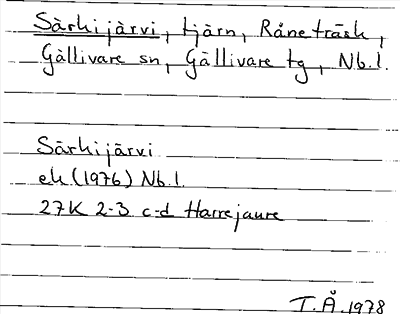 Särkijärvi, tjärn, Råneträsk,
Gällivare sn, Gällivare tg, Nb.l.
Särkijärvi
ek (1976) Nb.l.
27K 2-3 c-d Harrejaure
T.Å. 1978